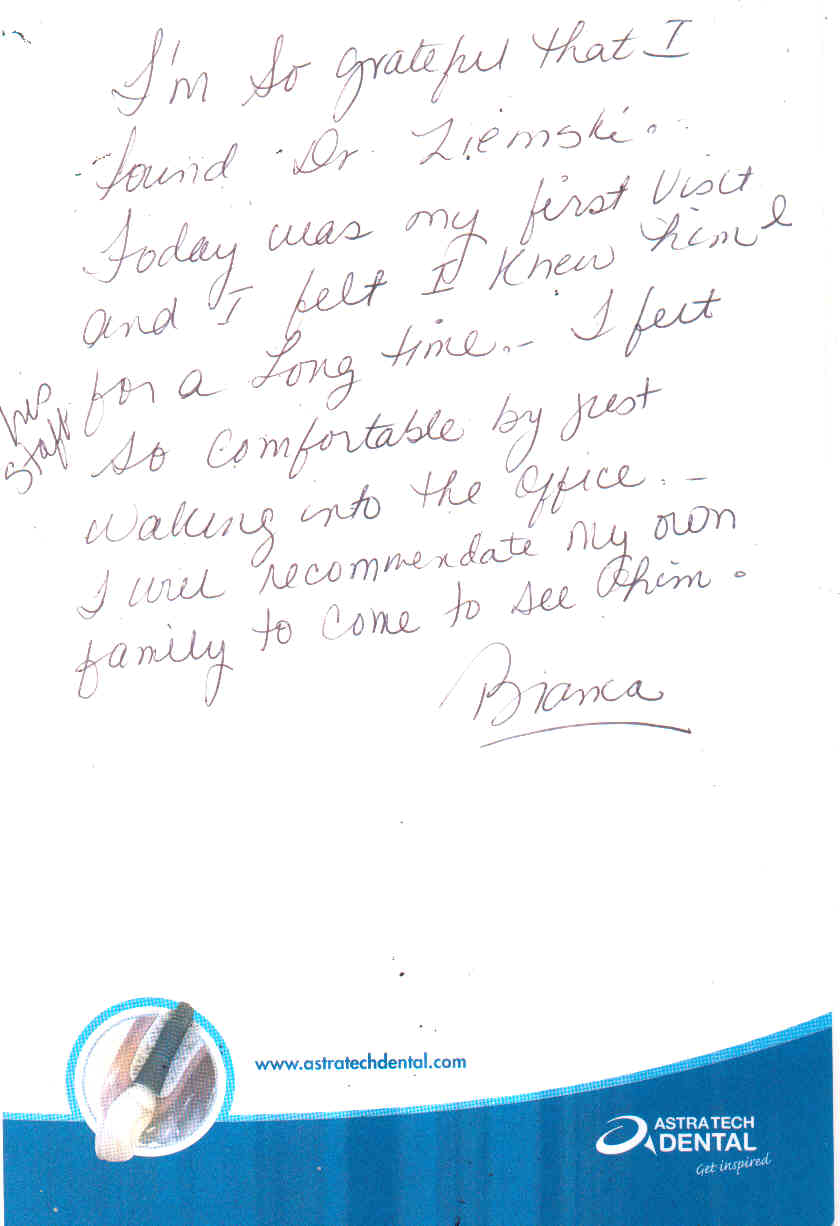 I'm so grateful that I
found Dr. Ziemski.
Today was my first visit
and I felt I knew him &
his staff
for a long time.- I felt
so comfortable by just
walking into the office.-
I will recommendate my own
family to come to see him.
Bianca
www.astratechdental.com
ASTRA TECH
DENTAL
Get inspired